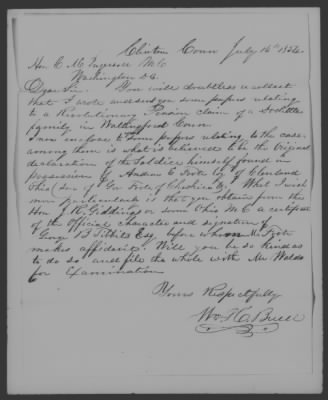 Clinton Conn July 14th 1854.
Hon C. M. Ingersoll M.C.
Washington D.C.
Dear Sir. You will doubtless recollect
that I wrote and sent you some papers relating
to a Revolutionary Pension claim of a Doolittle
family in Wallingford Conn.
I now enclose to some papers relating to the case.
among them is what is believed to be the Original
declaration of the Soldier himself found in
possession of Andrew E Foote Esq of Cleveland
Ohio (Son of Gov Foote of Cheshire Ct). What I wish
more particularly is that you obtain from the
Hon J. R. Giddings or some Ohio M C a certificate
of the Official character and signature of
George B Tibbits Esq, before whom Mr Foote
makes affidavit. Will you be so kind as
to do so and file the whole with Mr Waldo
for Examination
Yours Respectfully
Wm H. Buell